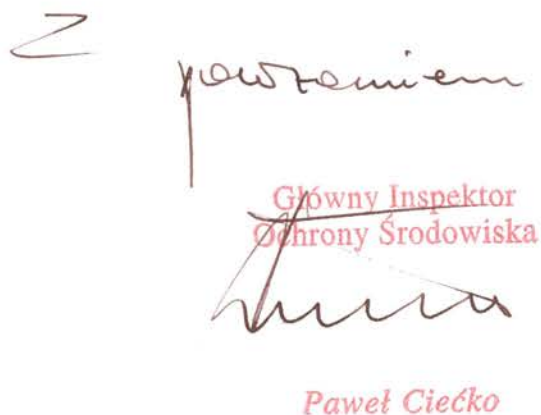 Z poważaniem
Główny Inspektor
Ochrony Środowiska
Paweł Ciećko